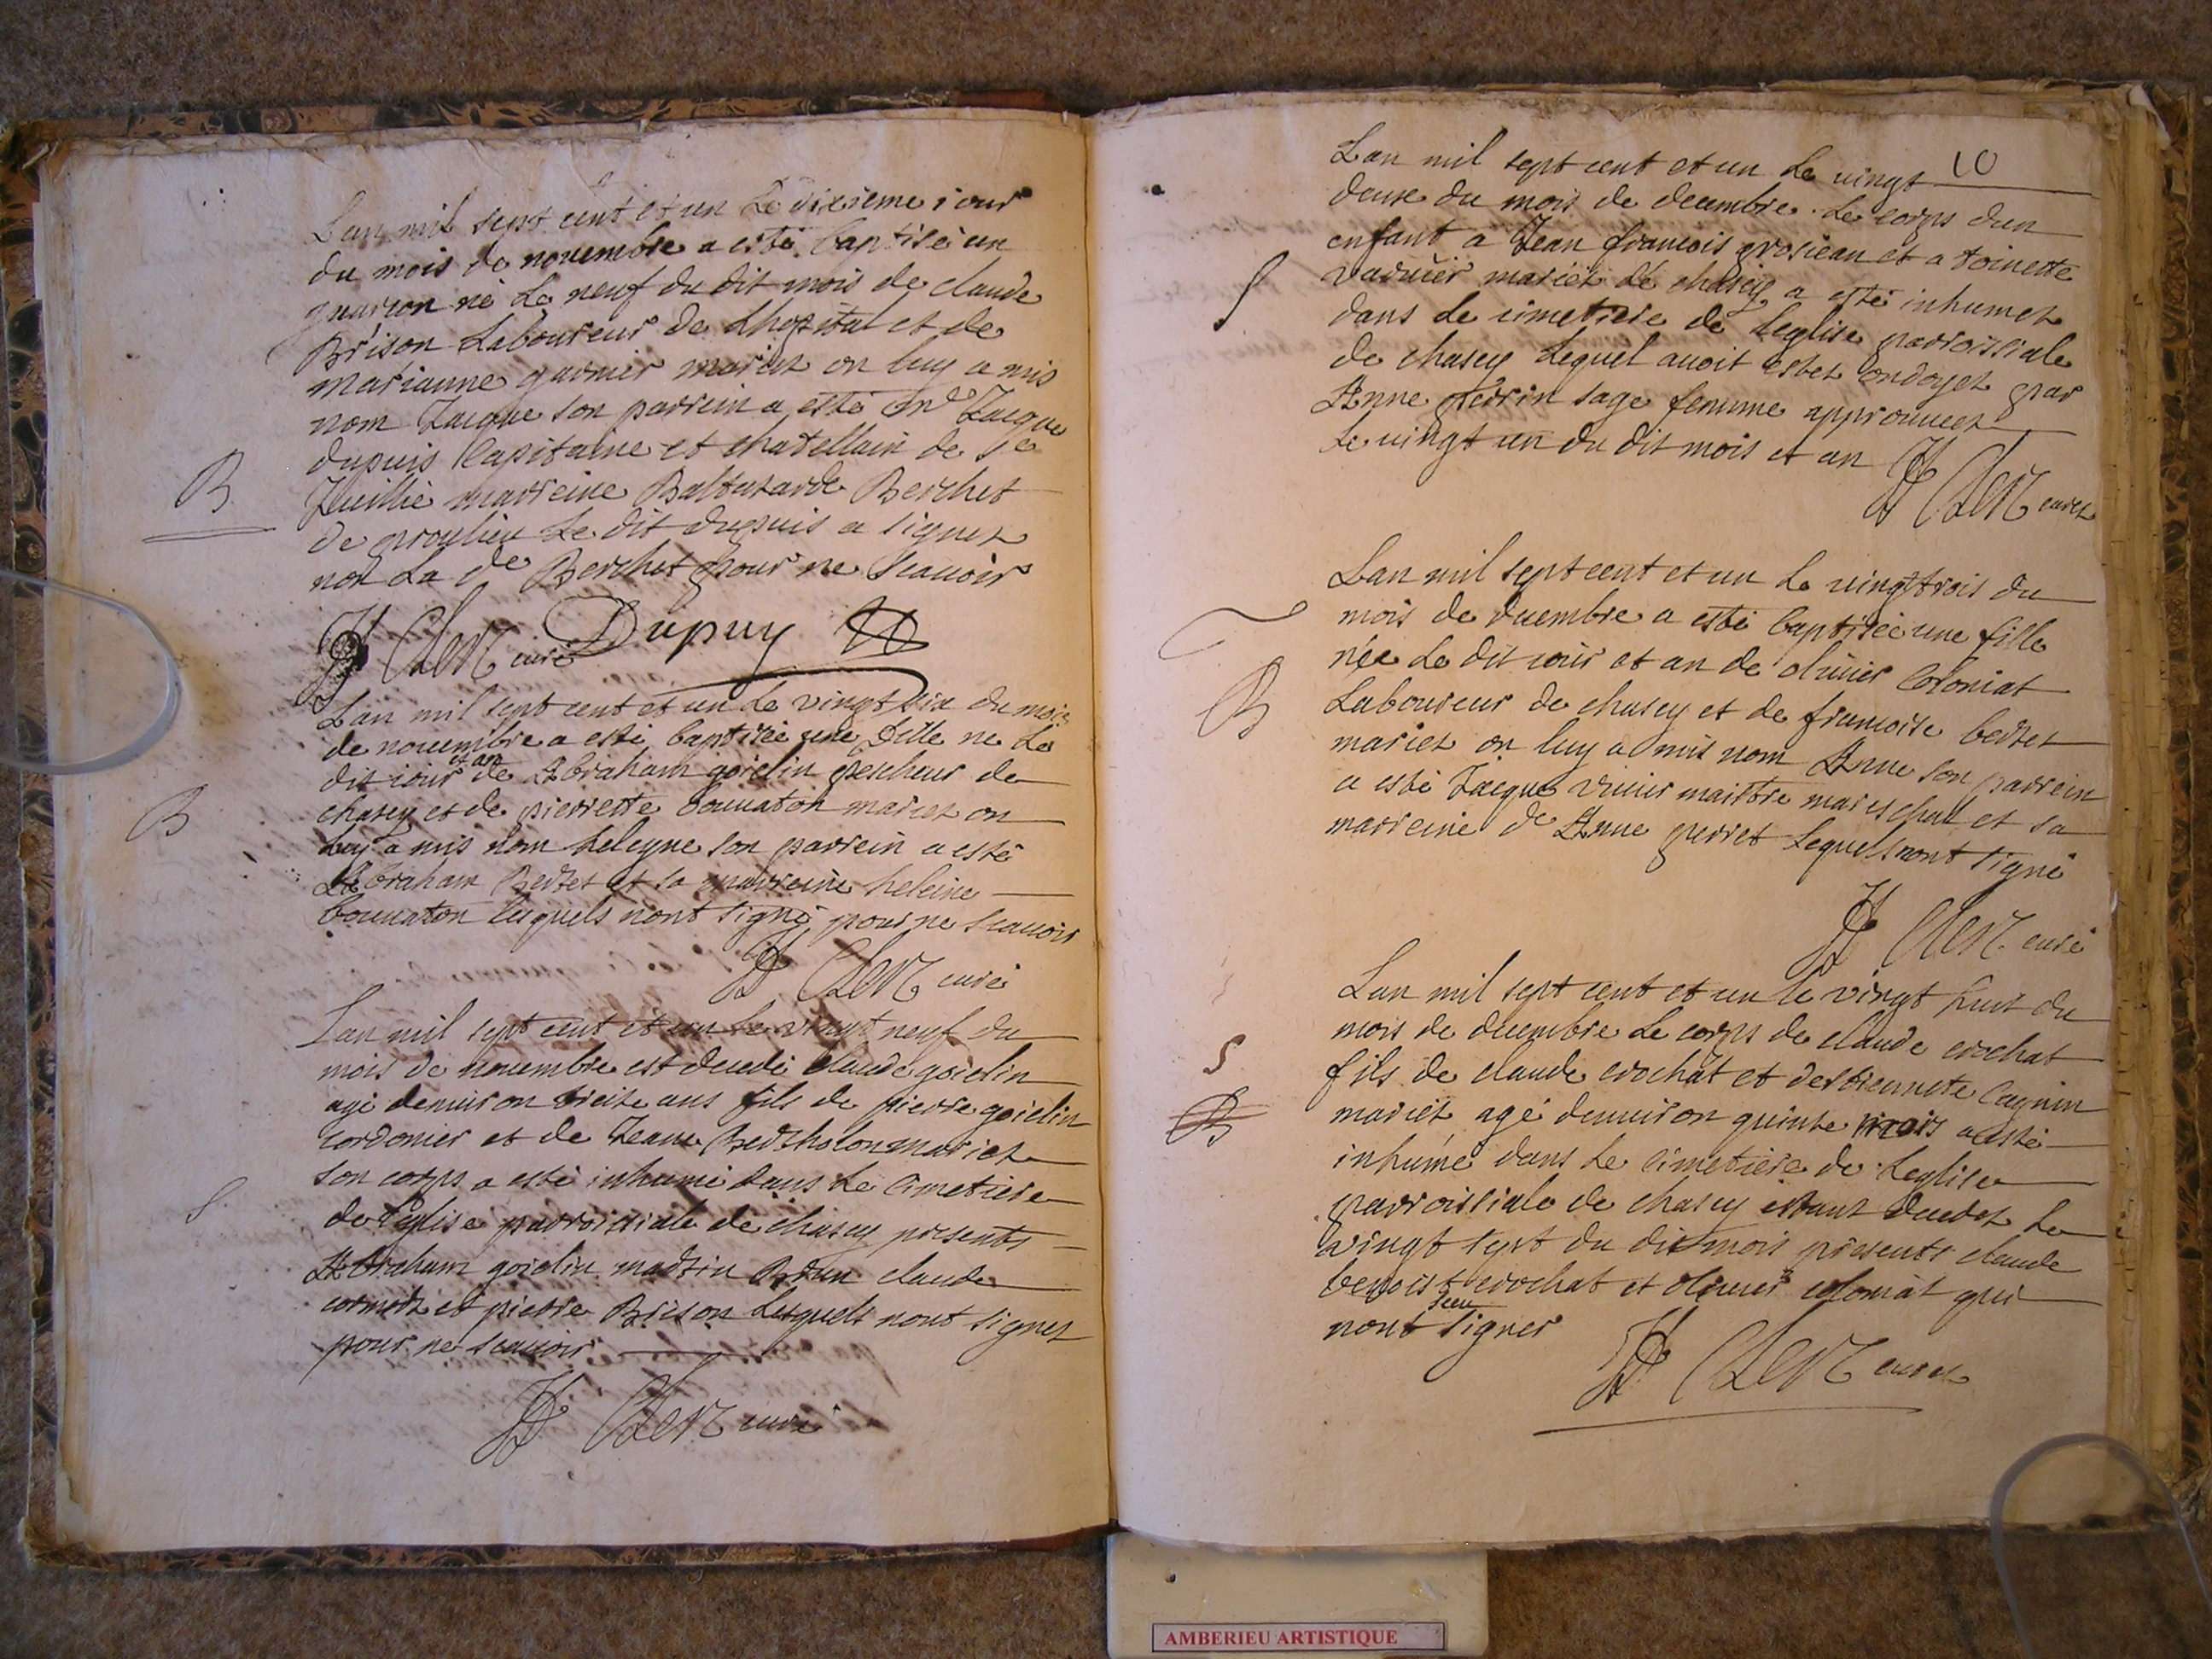 Lan mil sept cent et un Le dixieme iour
du mois de nouembre a esté baptisé un
guarcon né Le neuf du dit mois de claude
Brison Laboureur de Lhopital et de
marianne garnier mariez on luy a mis
nom Jacque son parrein a esté Jacque
dupuis Capitaine et chatellain de st
Juillie marreine Baltazarde Berchet
de proulieu Le dit dupuis a signez
non La de Berchet pour ne scauoir
B
Clerc curé Dupuy
Lan mil sept cent et un Le vingt six du mois
de nouembre a esté baptisée une fille ne Le
dit iour et an de Abraham goiclin pescheur de
chasey et de pierrette bouuaton mariez on
Luy a mis nom heleyne son parrein a esté
Abraham Bertet et sa marreine heleine
bouuaton lesquels nont signé pour ne scauoir
B
Clerc curé
Lan mil sept cent et un Le vingt neuf du
mois de nouembre est decedé claude goiclin
agé denuiron treize ans fils de pierre goiclin
cordonier et de Jeane Bertholon mariez
son corps a esté inhumé dans Le Cimetiere
de Leglise parroissiale de chasey presents
Abraham goiclin martin Brun claude
et pierre Brison Lesquels nont signez
pour ne scauoir
S
Clerc curé
10
Lan mil sept cent et un Le vingt
deux du mois de decembre Le corps dun
enfant a Jean francois grosjean et a toinette
mariez de chasey a esté inhumez
dans Le cimetiere de Leglise parroissiale
de chasey Lequel auoit estez ondoyez par
Anne perrin sage femme approuuez
Le vingt un du dit mois et an
S
Clerc curez
Lan mil sept cent et un Le vingt trois du
mois de decembre a esté baptisée une fille
née Le dit iour et an de oliuier Coloniat
Laboureur de chasey et de francoise bertet
mariez on luy a mis nom Anne son parrein
a esté Jacque maittre mareschal et sa
marreine de Anne perret Lequels nont signé
B
Clerc curé
Lan mil sept cent et un le vingt huit du
mois de decembre Le corps de claude crochat
fils de claude crochat et destiennete Cagnin
mariez agé denuiron quinze mois a esté
inhumé dans Le Cimetiere de Leglise
parroissiale de chasey estant decedez Le
vingt sept du dit mois presents claude
benoist crochat et oliuier coloniat qui
nont sceu signer
S
B
Clerc curez
AMBERIEU ARTISTIQUE